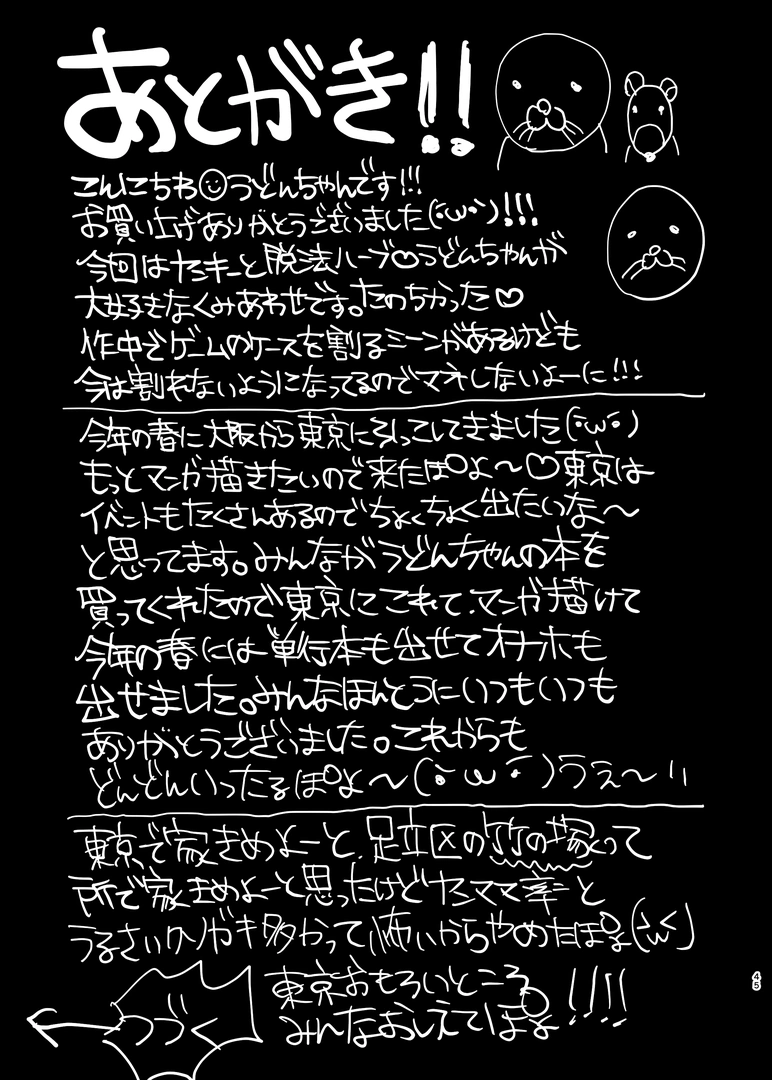 あとがき!!
こんにちわ☺うどんちゃんです!!!
お買い上げありがとうございました(・ω・)!!!
今回はヤンキーと脱法ハーブ♡うどんちゃんが
大好きなくみあわせです。たのちかった♡
作中でゲームのケースを割るシーンがあるけども
今は割れないようになってるのでマネしないよーに!!!
今年の春に大阪から東京に引っこしてきました(・ω・)
もっとマンガ描きたいので来たぽよ〜♡東京は
イベントもたくさんあるのでちょくちょく出たいな〜
と思ってます。みんながうどんちゃんの本を
買ってくれたので東京にこれて、マンガ描けて
今年の春には単行本も出せてオナホも
出せました。みんなほんとうにいつもいつも
ありがとうございました。これからも
どんどんいったるぽよ〜(・ω・)うぇ〜!!
東京で家きめよーと、足立区の竹の塚って
所で家きめよーと思ったけどヤンママ率と
うるさいクソガキ多かって怖いからやめたぽよ(・ω<)
東京おもろいところ
みんなおしえてぽよ!!!!
つづく
45